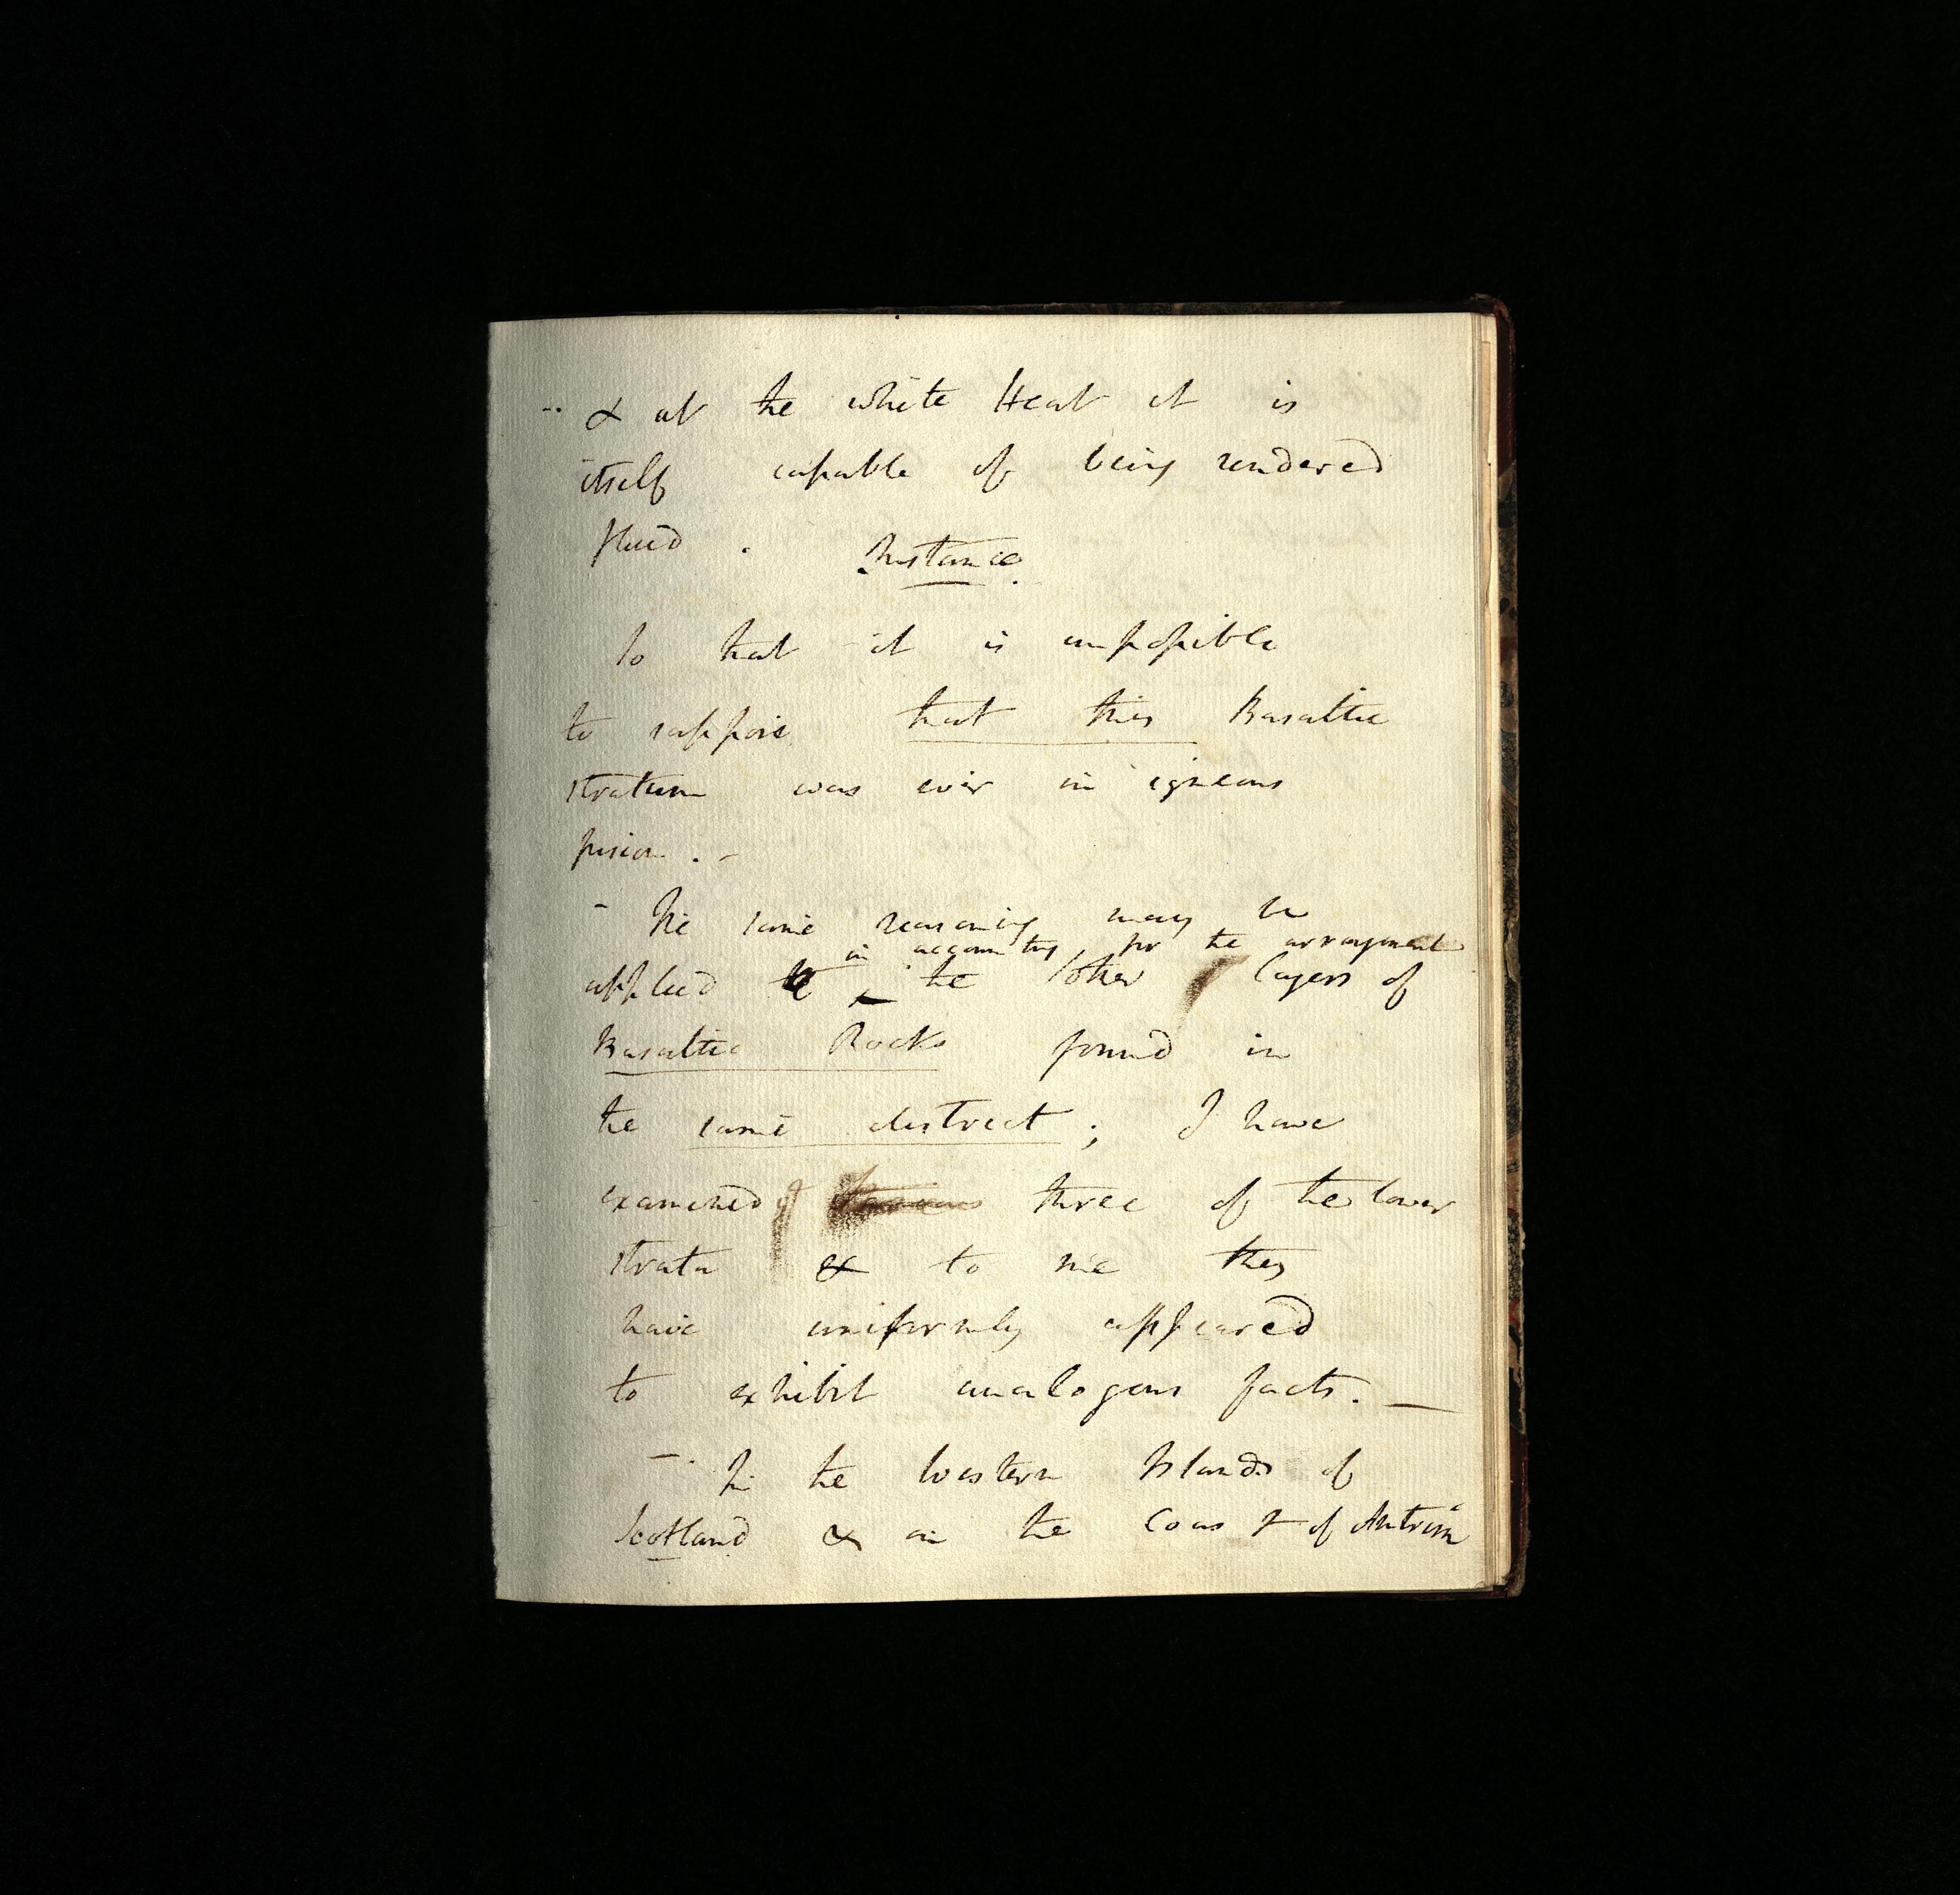 -- & at the white Heat it is
itself capable of being rendered
fluid . Instance.
So that it is impossible
to suppose that this Basaltic
stratum was ever in igneous
fusion . -
- The same reasoning may be
in accounting for the arrangement
applied the other layers of
Basaltic Rocks found in
the same district ; I have
examined three of the lower
strata & to me they
have uniformly appeared
to exhibit analogous facts. —
- In the Western Islands of
Scotland & on the Coast of Antrim